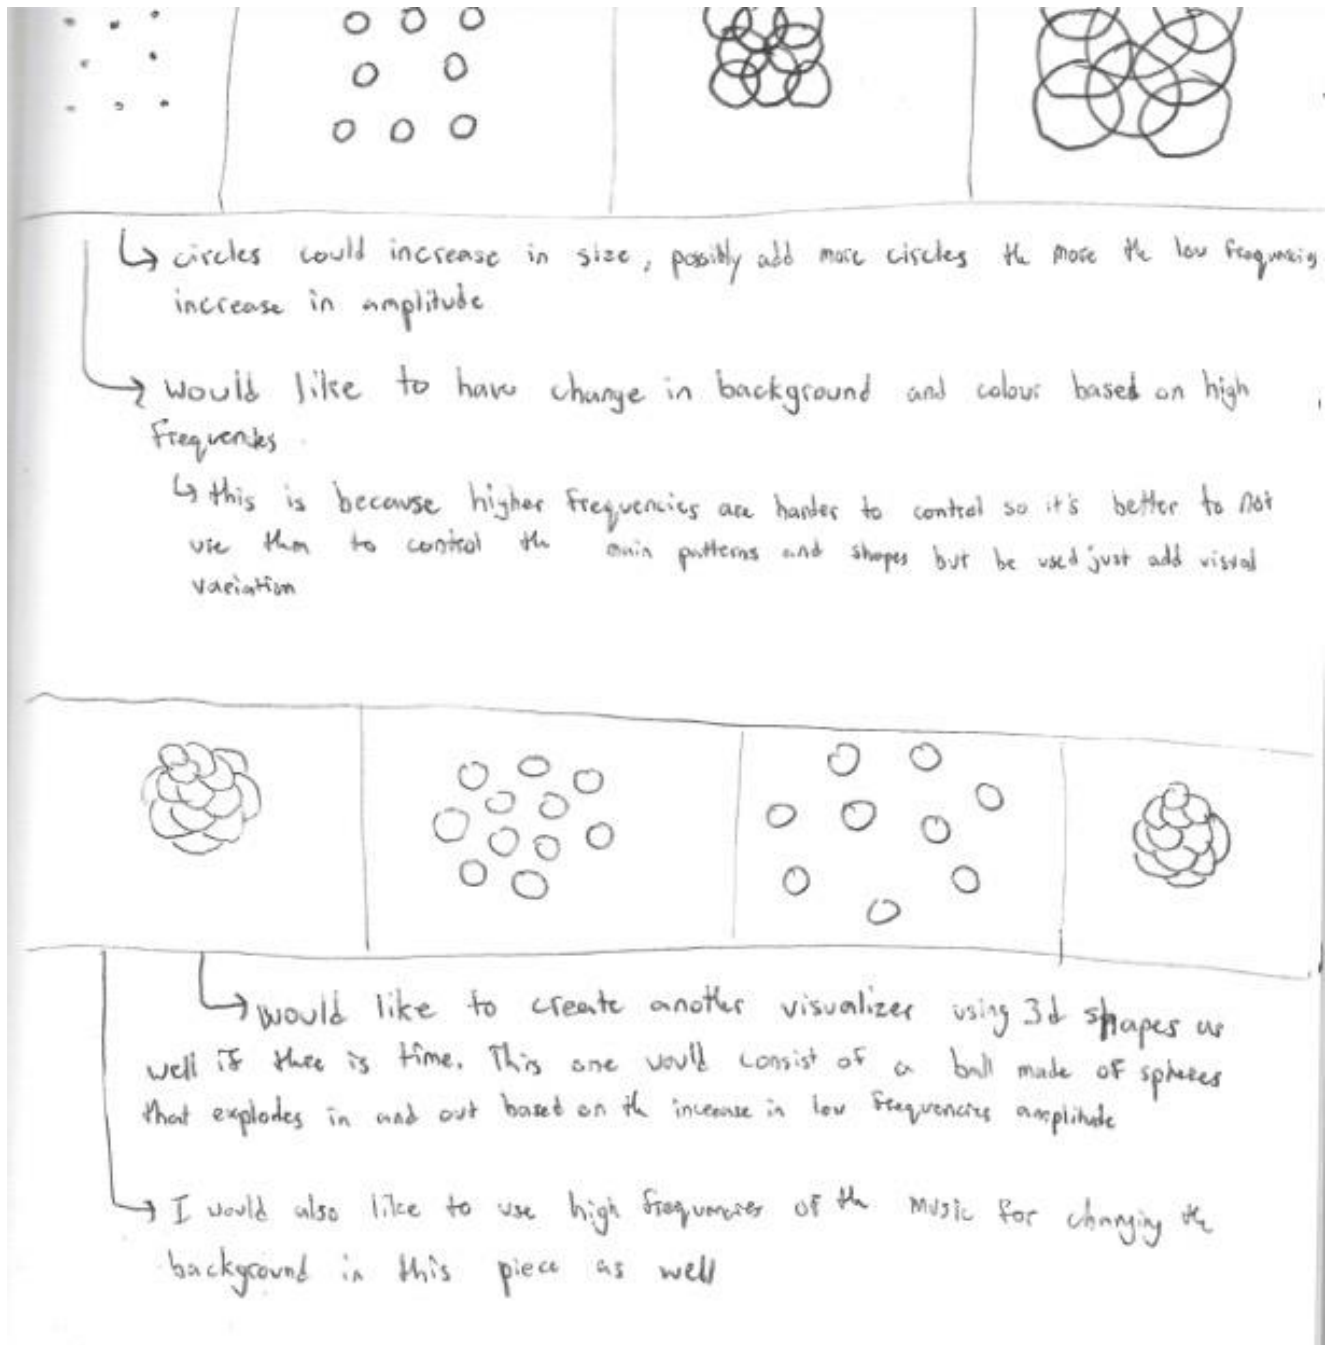 circles could increase in size, possibly add more circles the more the low frequencies
increase in amplitude
would like to have change in background and colour based on high
frequencies
this is because higher frequencies are harder to control so it's better to not
use them to control the main patterns and shapes but be used just add visual
variation
would like to create another visualizer using 3d shapes as
well if there is time. This one would consist of a ball made of spheres
that explodes in and out based on the increase in low frequencies amplitude
I would also like to use high frequencies of the music for changing the
background in this piece as well